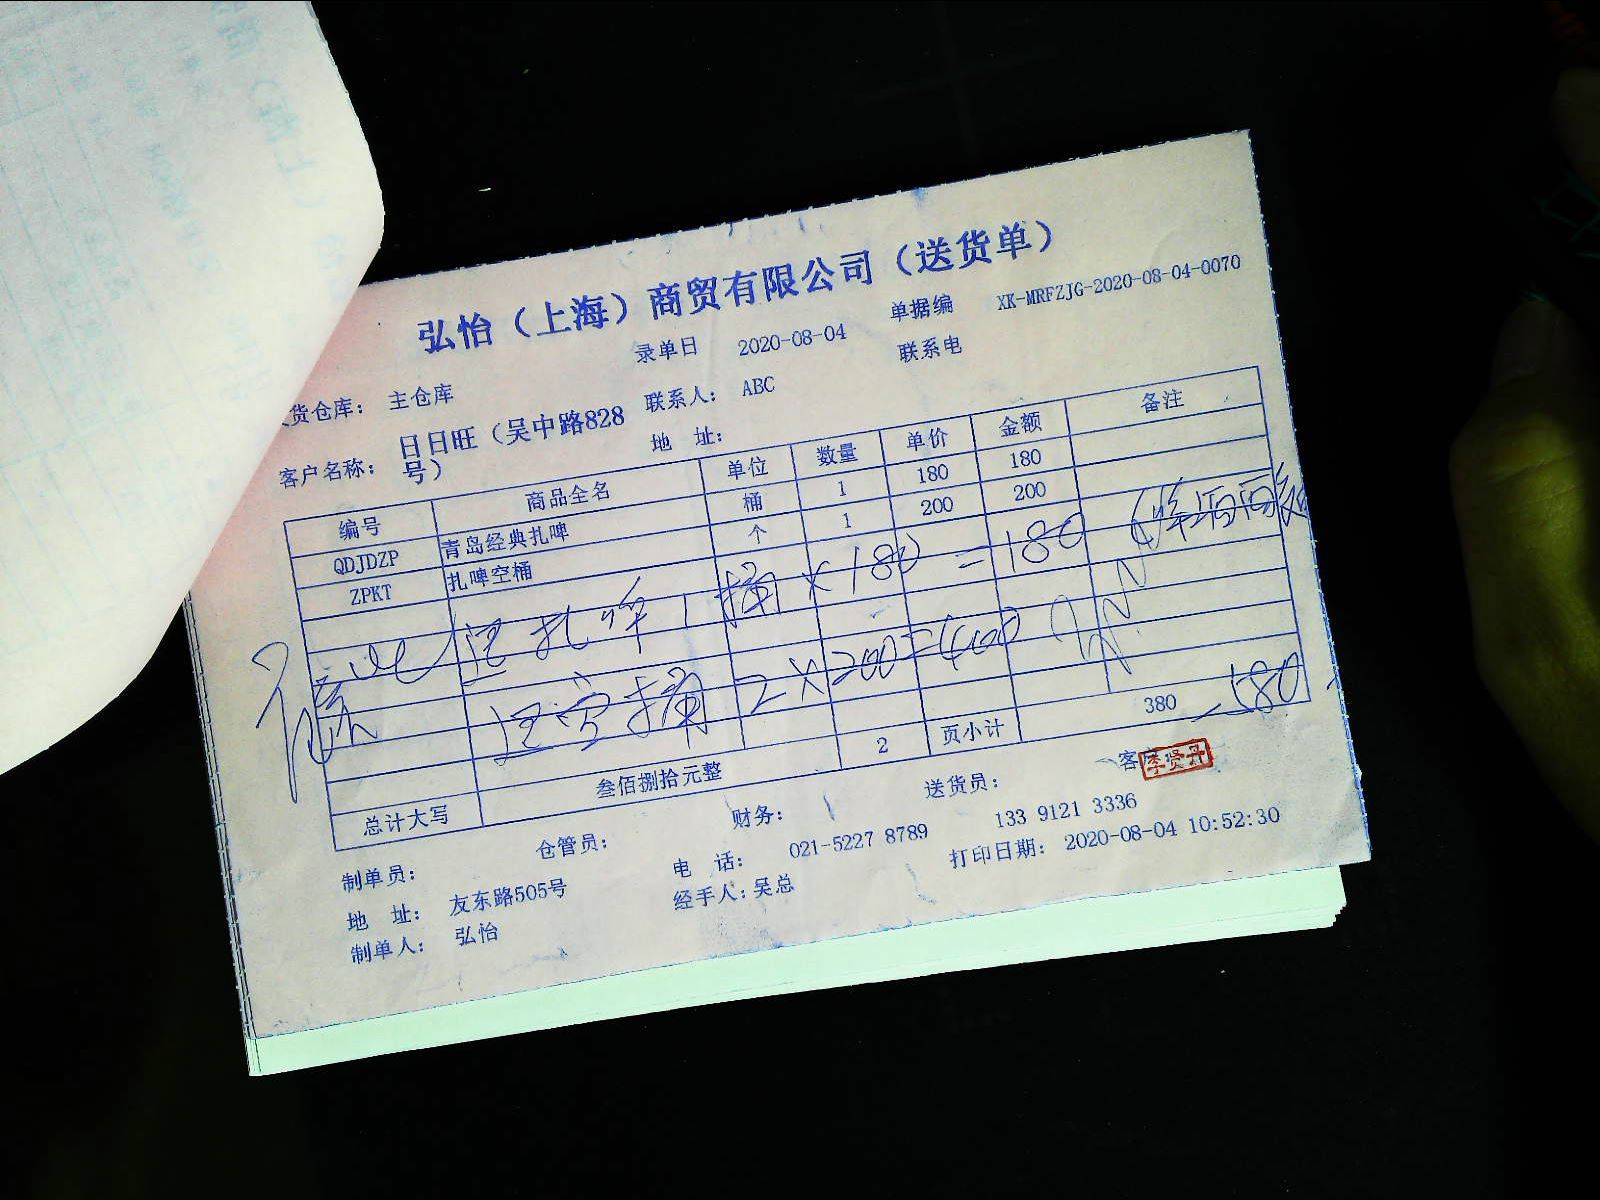 弘怡（上海）商贸有限公司（送货单）
录单日 2020-08-04 单据编 XK-MRFZJG-2020-08-04-0070
货仓库： 主仓库 联系人： ABC 联系电
客户名称： 日日旺（吴中路828号） 地 址：
编号 商品全名 单位 数量 单价 金额 备注
QDJDZP 青岛经典扎啤 桶 1 180 180
ZPKT 扎啤空桶 个 1 200 200
扎啤1桶×180=180
空桶2×200=400
580
2 页小计 380
总计大写 叁佰捌拾元整
制单员： 仓管员： 财务： 送货员： 客 李贤丹
地 址： 友东路505号 电 话： 021-5227 8789 133 9121 3336
制单人： 弘怡 经手人：吴总 打印日期： 2020-08-04 10:52:30